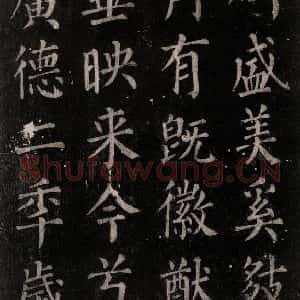 盛美奚
有既徽猷
並映来今兮
廣德二秊歲
Shufawang.CN